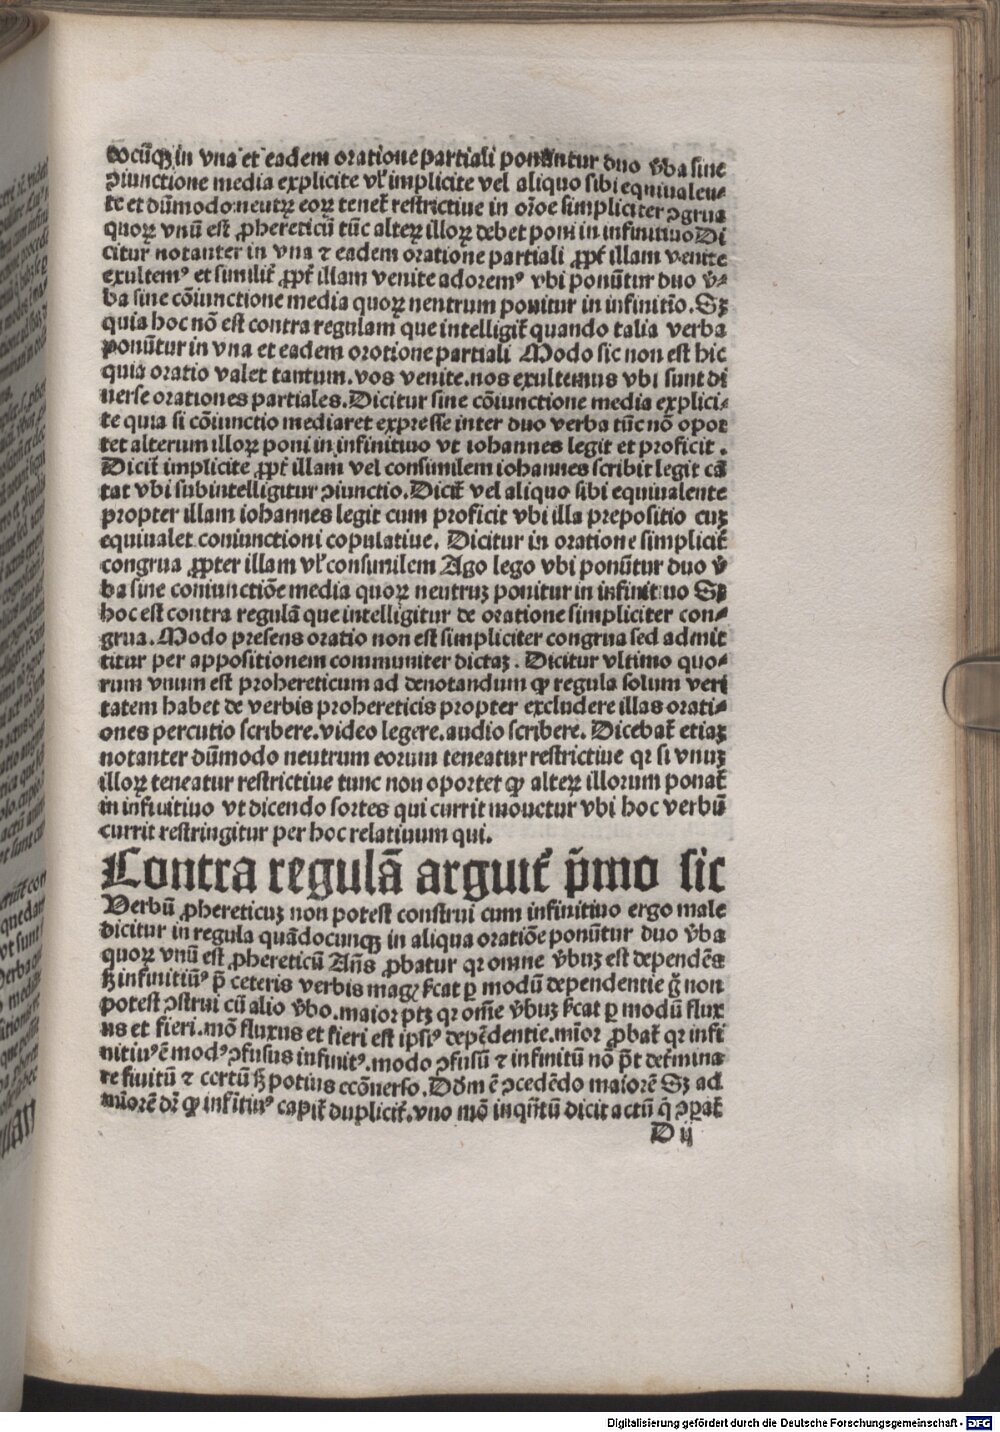 docūqꝫ in vna et eadem oratione partiali ponūntur duo v̄ba sine
ↄiunctione media explicite vl' implicite vel aliquo sibi equiualeu⸗
te et dūmodo neutrꝝ eorꝝ tenet̄ restrictiue in or̄oe simpliciter ↄgrua
quorꝝ vnū est ꝓhereticū tūc alterꝝ illorꝝ debet poni in infinitiuo Di
citur notanter in vna ⁊ eadem oratione partiali ꝓpt̄ illam venite
exultemꝰ et similit̄ ꝓpt̄ illam venite adoremꝰ vbi ponūtur duo v̄⸗
ba sine cōiunctione media quorꝝ nentrum ponitur in infinitio. Sꝫ
quia hoc nō est contra regulam que intelligit̄ quando talia verba
ponūtur in vna et eadem orotione partiali Modo sic non est hic
quia oratio valet tantum. vos venite. nos exultemus vbi sunt di
uerse orationes partiales. Dicitur sine cōiunctione media explici⸗
te quia si cōiunctio mediaret expresse inter duo verba tūc nō opor
tet alterum illorꝝ poni in infinitiuo vt iohannes legit et proficit .
Dicit̄ implicite ꝓpt̄ illam vel consimilem iohannes scribit legit cā
tat vbi subintelligitur ↄiunctio. Dicit̄ vel aliquo sibi equiualente
propter illam iohannes legit cum proficit vbi illa prepositio cuꝫ
equiualet coniunctioni copulatiue. Dicitur in oratione simplicit̄
congrua ꝓpter illam vl' consimilem Ago lego vbi ponūtur duo v̄
ba sine coniunctiōe media quorꝝ neutruꝫ ponitur in infinitiuo Sꝫ
hoc est contra regulā que intelligitur de oratione simpliciter con⸗
grua. Modo presens oratio non est simpliciter congrua sed admit
titur per appositionem communiter dictaꝫ . Dicitur vltimo quo⸗
rum vnum est prohereticum ad denotandum ꝙ regula solum veri
tatem habet de verbis prohereticis propter excludere illas orati⸗
ones percutio scribere. video legere. audio scribere. Dicebat̄ etiaꝫ
notanter dūmodo neutrum eorum teneatur restrictiue qr si vnuꝫ
illorꝝ teneatur restrictiue tunc non oportet ꝙ alterꝝ illorum ponat̄
in infiuitiuo vt dicendo sortes qui currit mouetur vbi hoc verbū
currit restringitur per hoc relatiuum qui.
Contra regulā arguit̄ p̄mo sic
Verbū ꝓhereticuꝫ non potest construi cum infinitiuo ergo male
dicitur in regula quādocunqꝫ in aliqua oratiōe ponūtur duo v̄ba
quorꝝ vnū est ꝓhereticū Añs ꝓbatur qr omne v̄buꝫ est dependēs
sꝫ infinitiūꝰ p̄ ceteris verbis mag̛ s̄cat ꝑ modū dependentie g̊ non
potest ↄstrui cū alio v̄bo. maior ptꝫ qr om̄e v̄buꝫ s̄cat ꝑ modū flux
us et fieri. mō fluxus et fieri est ipsiꝰ depēdentie. mīor ꝓbat̄ qr infi
nitiuꝰ ē modꝰ ↄfusus infinitꝰ. modo ↄfusū ⁊ infinitū nō p̄t det̄mina
re fiuitū ⁊ certū sꝫ potius ecōuerso. Dōm ē ↄcedēdo maiorē Sꝫ ad
mīorē dr̄ ꝙ infitiuꝰ capit̄ duplicit̄. vno mō inqn̄tū dicit actū q̄ ↄpat̄
D ij
Digitalisierung gefördert durch die Deutsche Forschungsgemeinschaft - DFG